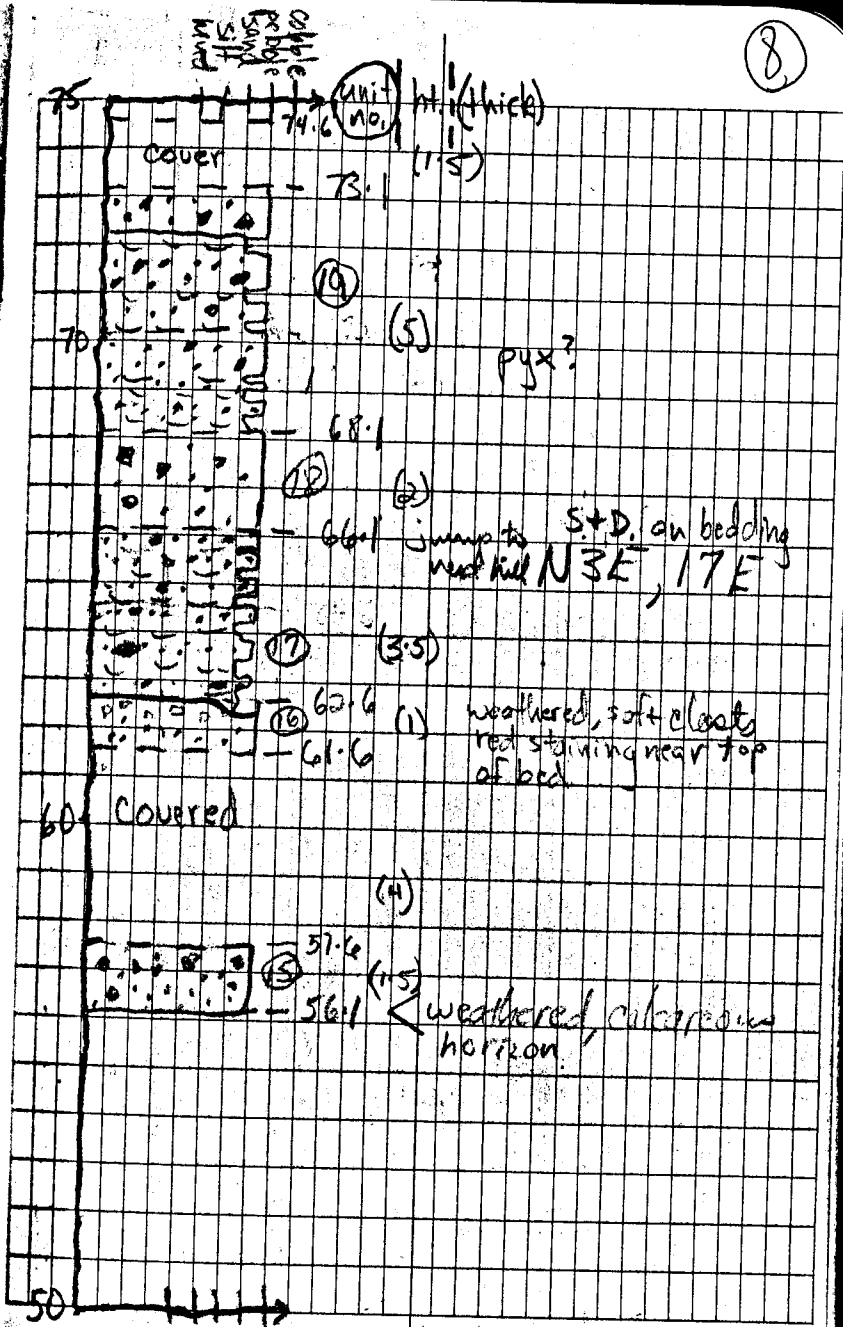 8
cobble
pebble
sand
silt
mud
75
unit no.
ht. (thick)
74.6
cover
(1.5)
73.1
19
70
(5)
pyx?
68.1
18
(2)
66.1
jump to
next hill
S.+D. on bedding
N3E, 17E
17
(3.5)
62.6
16
(1)
weathered, soft clasts
red staining near top
of bed
61.6
60
Covered
(4)
57.6
15
(1.5)
56.1
< weathered, calcareous
horizon
50